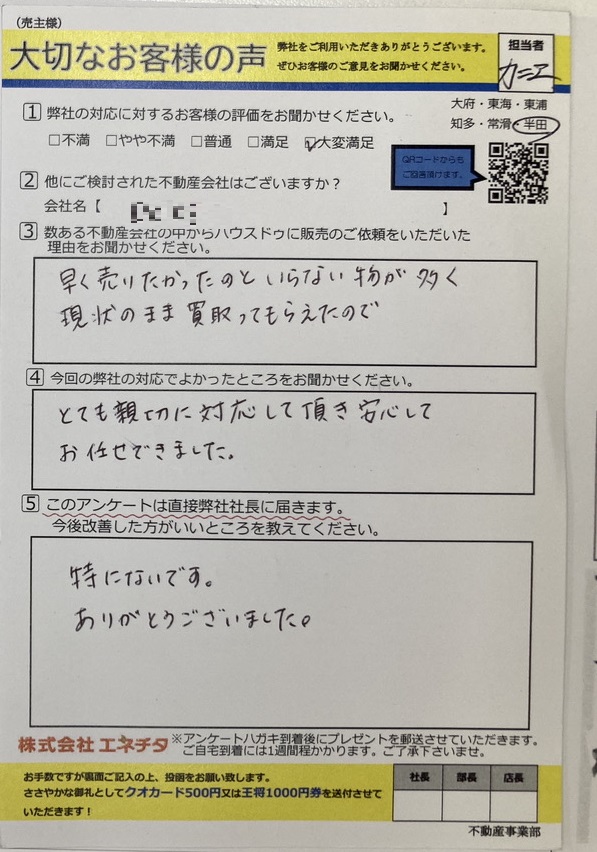 （売主様）
大切なお客様の声
弊社をご利用いただきありがとうございます。
ぜひお客様のご意見をお聞かせください。
担当者
カニエ
1 弊社の対応に対するお客様の評価をお聞かせください。
大府・東海・東浦
知多・常滑・半田
□不満 □やや不満 □普通 □満足 ☑大変満足
QRコードからも
ご回答頂けます。
2 他にご検討された不動産会社はございますか？
会社名【 】
3 数ある不動産会社の中からハウスドゥに販売のご依頼をいただいた
理由をお聞かせください。
早く売りたかったのといらない物が多く
現状のまま買取ってもらえたので
4 今回の弊社の対応でよかったところをお聞かせください。
とても親切に対応して頂き安心して
お任せできました。
5 このアンケートは直接弊社社長に届きます。
今後改善した方がいいところを教えてください。
特にないです。
ありがとうございました。
株式会社 エネチタ
※アンケートハガキ到着後にプレゼントを郵送させていただきます。
ご自宅到着には1週間程かかります。ご了承下さいませ。
お手数ですが裏面ご記入の上、投函をお願い致します。
ささやかな御礼としてクオカード500円又は王将1000円券を送付させて
いただきます！
社長 部長 店長
不動産事業部